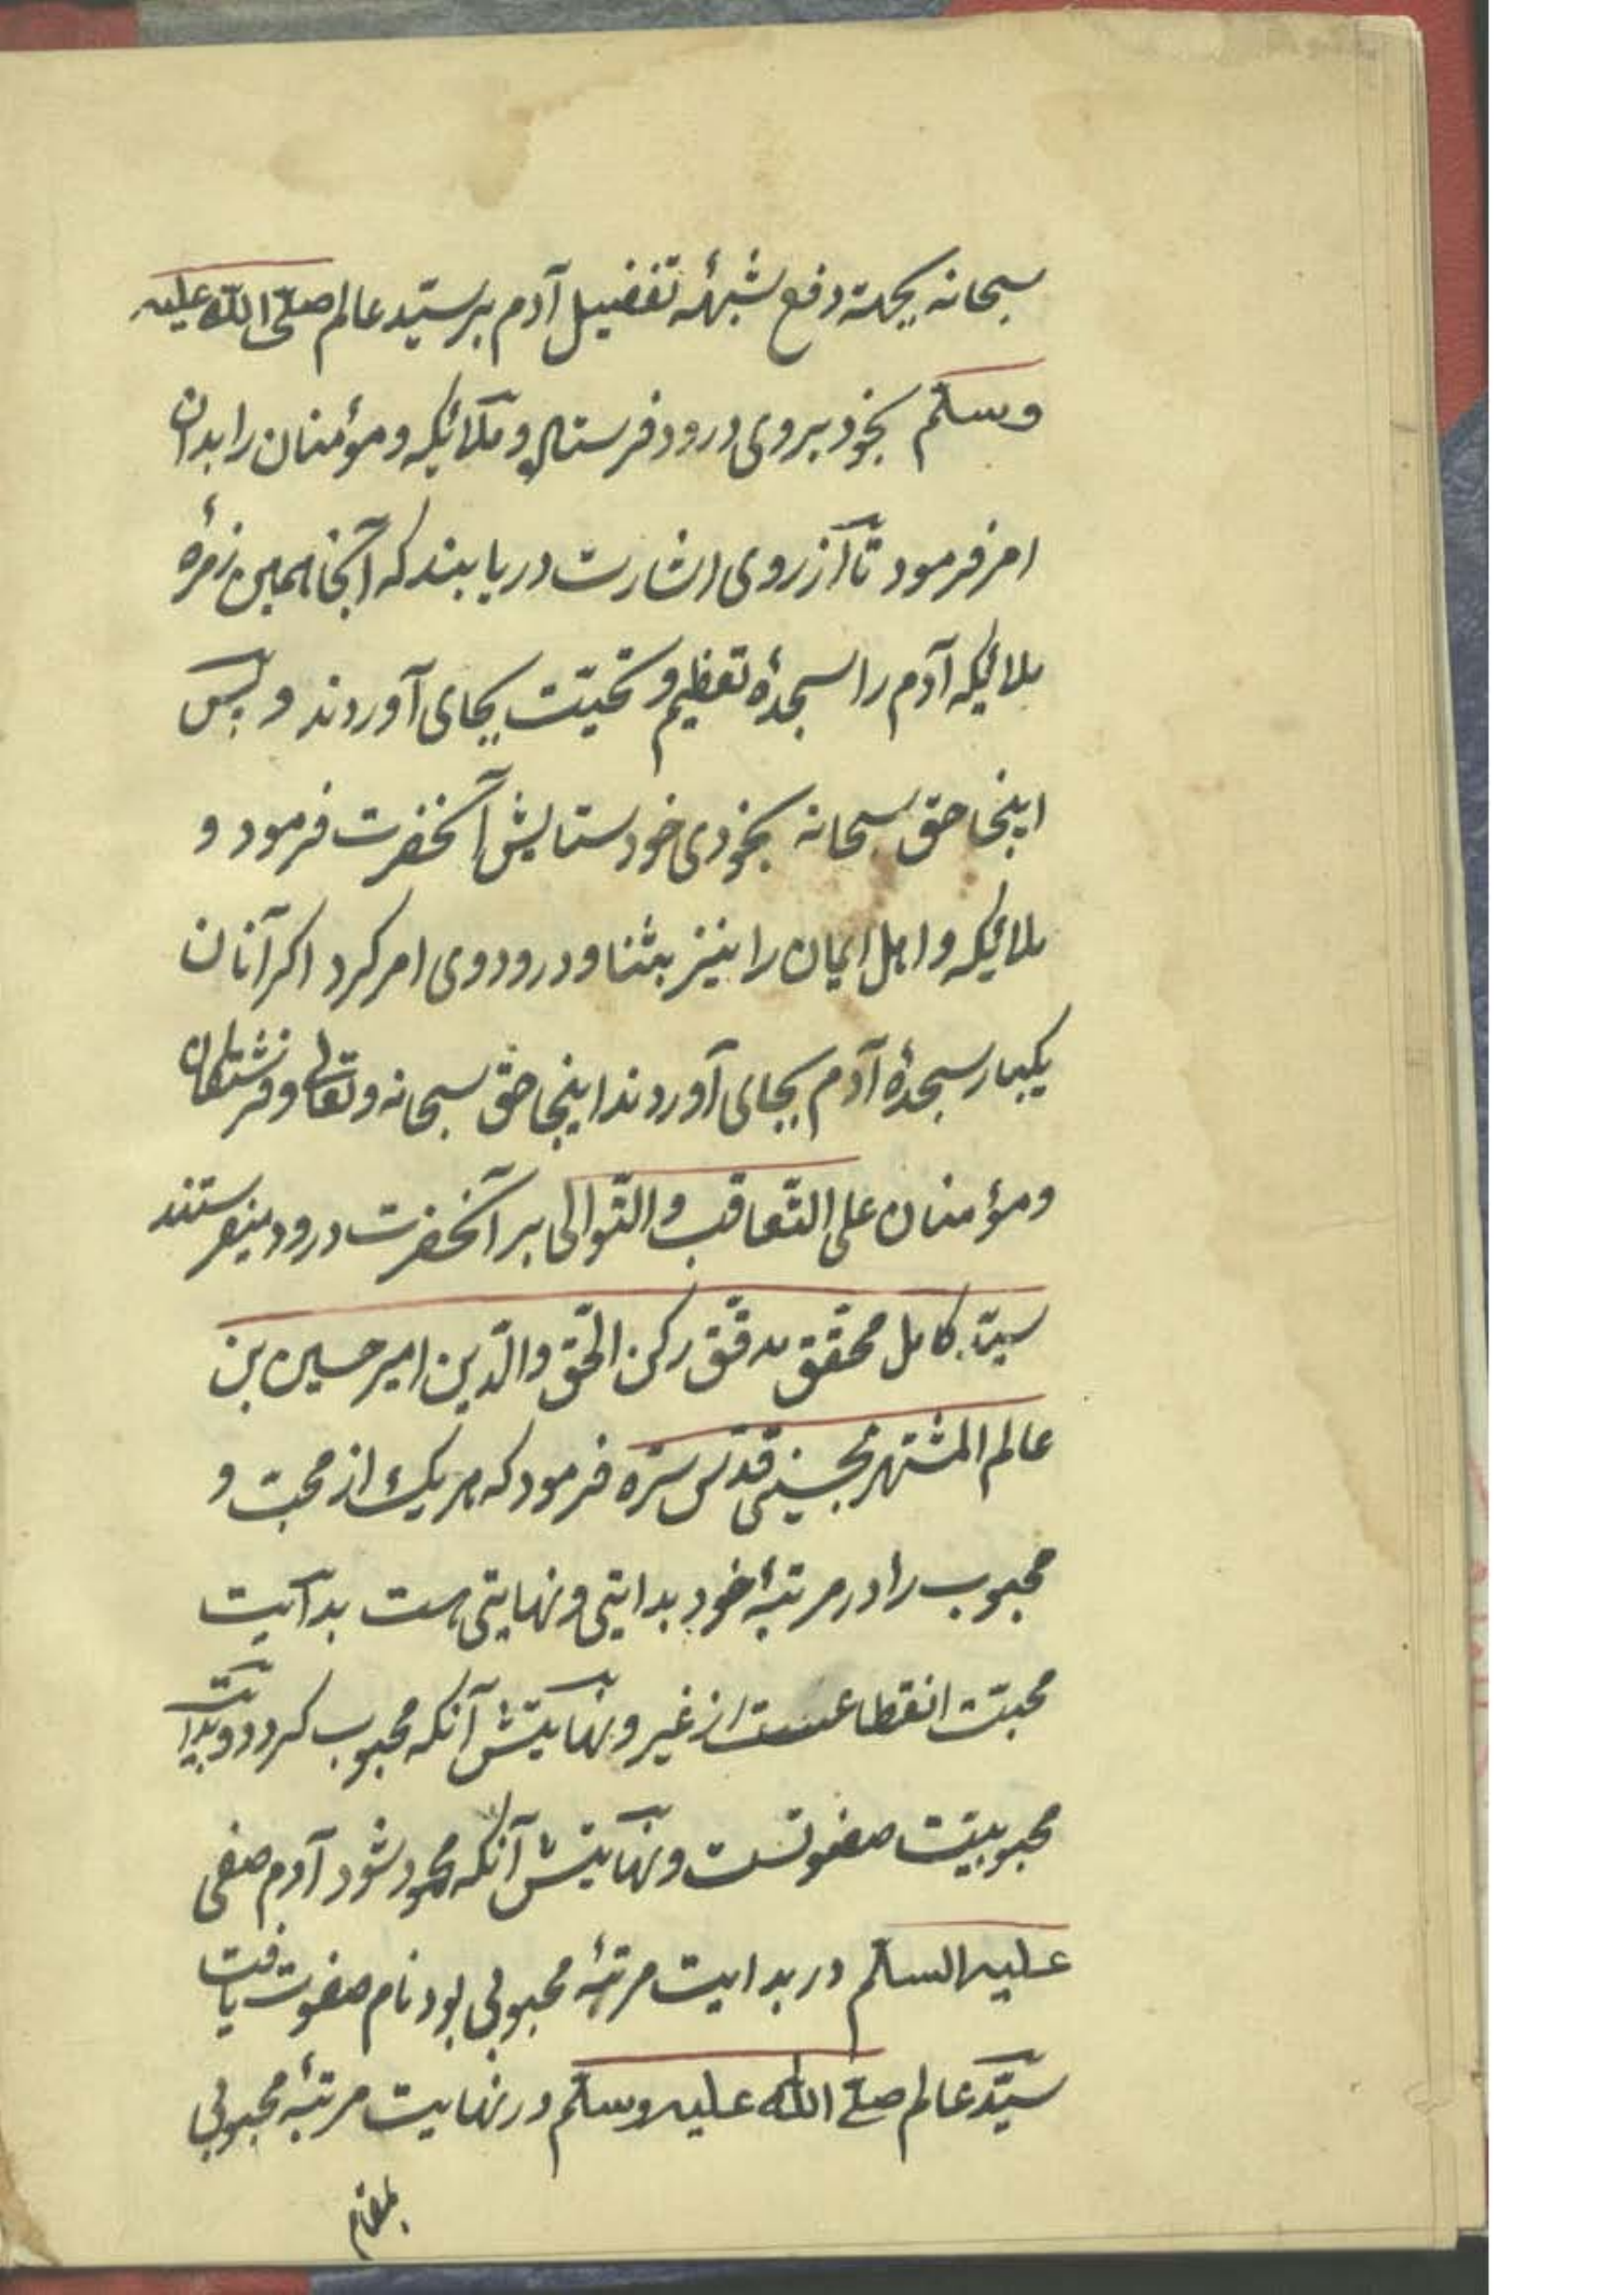 سبحانه بجهة دفع شبههٔ تفضیل آدم بر سیّد عالم صلّی الله علیه
وسلّم بخود بروی درود فرستاد و ملائکه و مؤمنان را بدان
امر فرمود تا از روی اشارت دریابند که آنجا همین زمرهٔ
ملائکه آدم را سجدهٔ تعظیم و تحیّت بجای آوردند و بس
اینجا حق سبحانه بخودی خود ستایش آنحضرت فرمود و
ملائکه و اهل ایمان را نیز بثنا و درود وی امر کرد اکر آنان
یکبار سجدهٔ آدم بجای آوردند اینجا حق سبحانه و تعالی و فرشتکان
و مؤمنان علی التّعاقب والتّوالی بر آنحضرت درود میفرستند
سیّد کامل محقّق مدقّق رکن الحق والدّین امیر حسین بن
عالم المشتهر بحسینی قدّس سرّه فرمود که هر یک از محبّ و
محبوب را در مرتبهٔ خود بدایتی و نهایتی هست بدایت
محبّت انقطاعست از غیر و نهایتش آنکه محبوب کردد و بدایت
محبوبیّت صفوتست و نهایتش آنکه محمود شود آدم صفی
علیه السلم در بدایت مرتبهٔ محبوبی بود نام صفوت یافت
سیّد عالم صلّی الله علیه وسلّم در نهایت مرتبهٔ محبوبی
بمقام